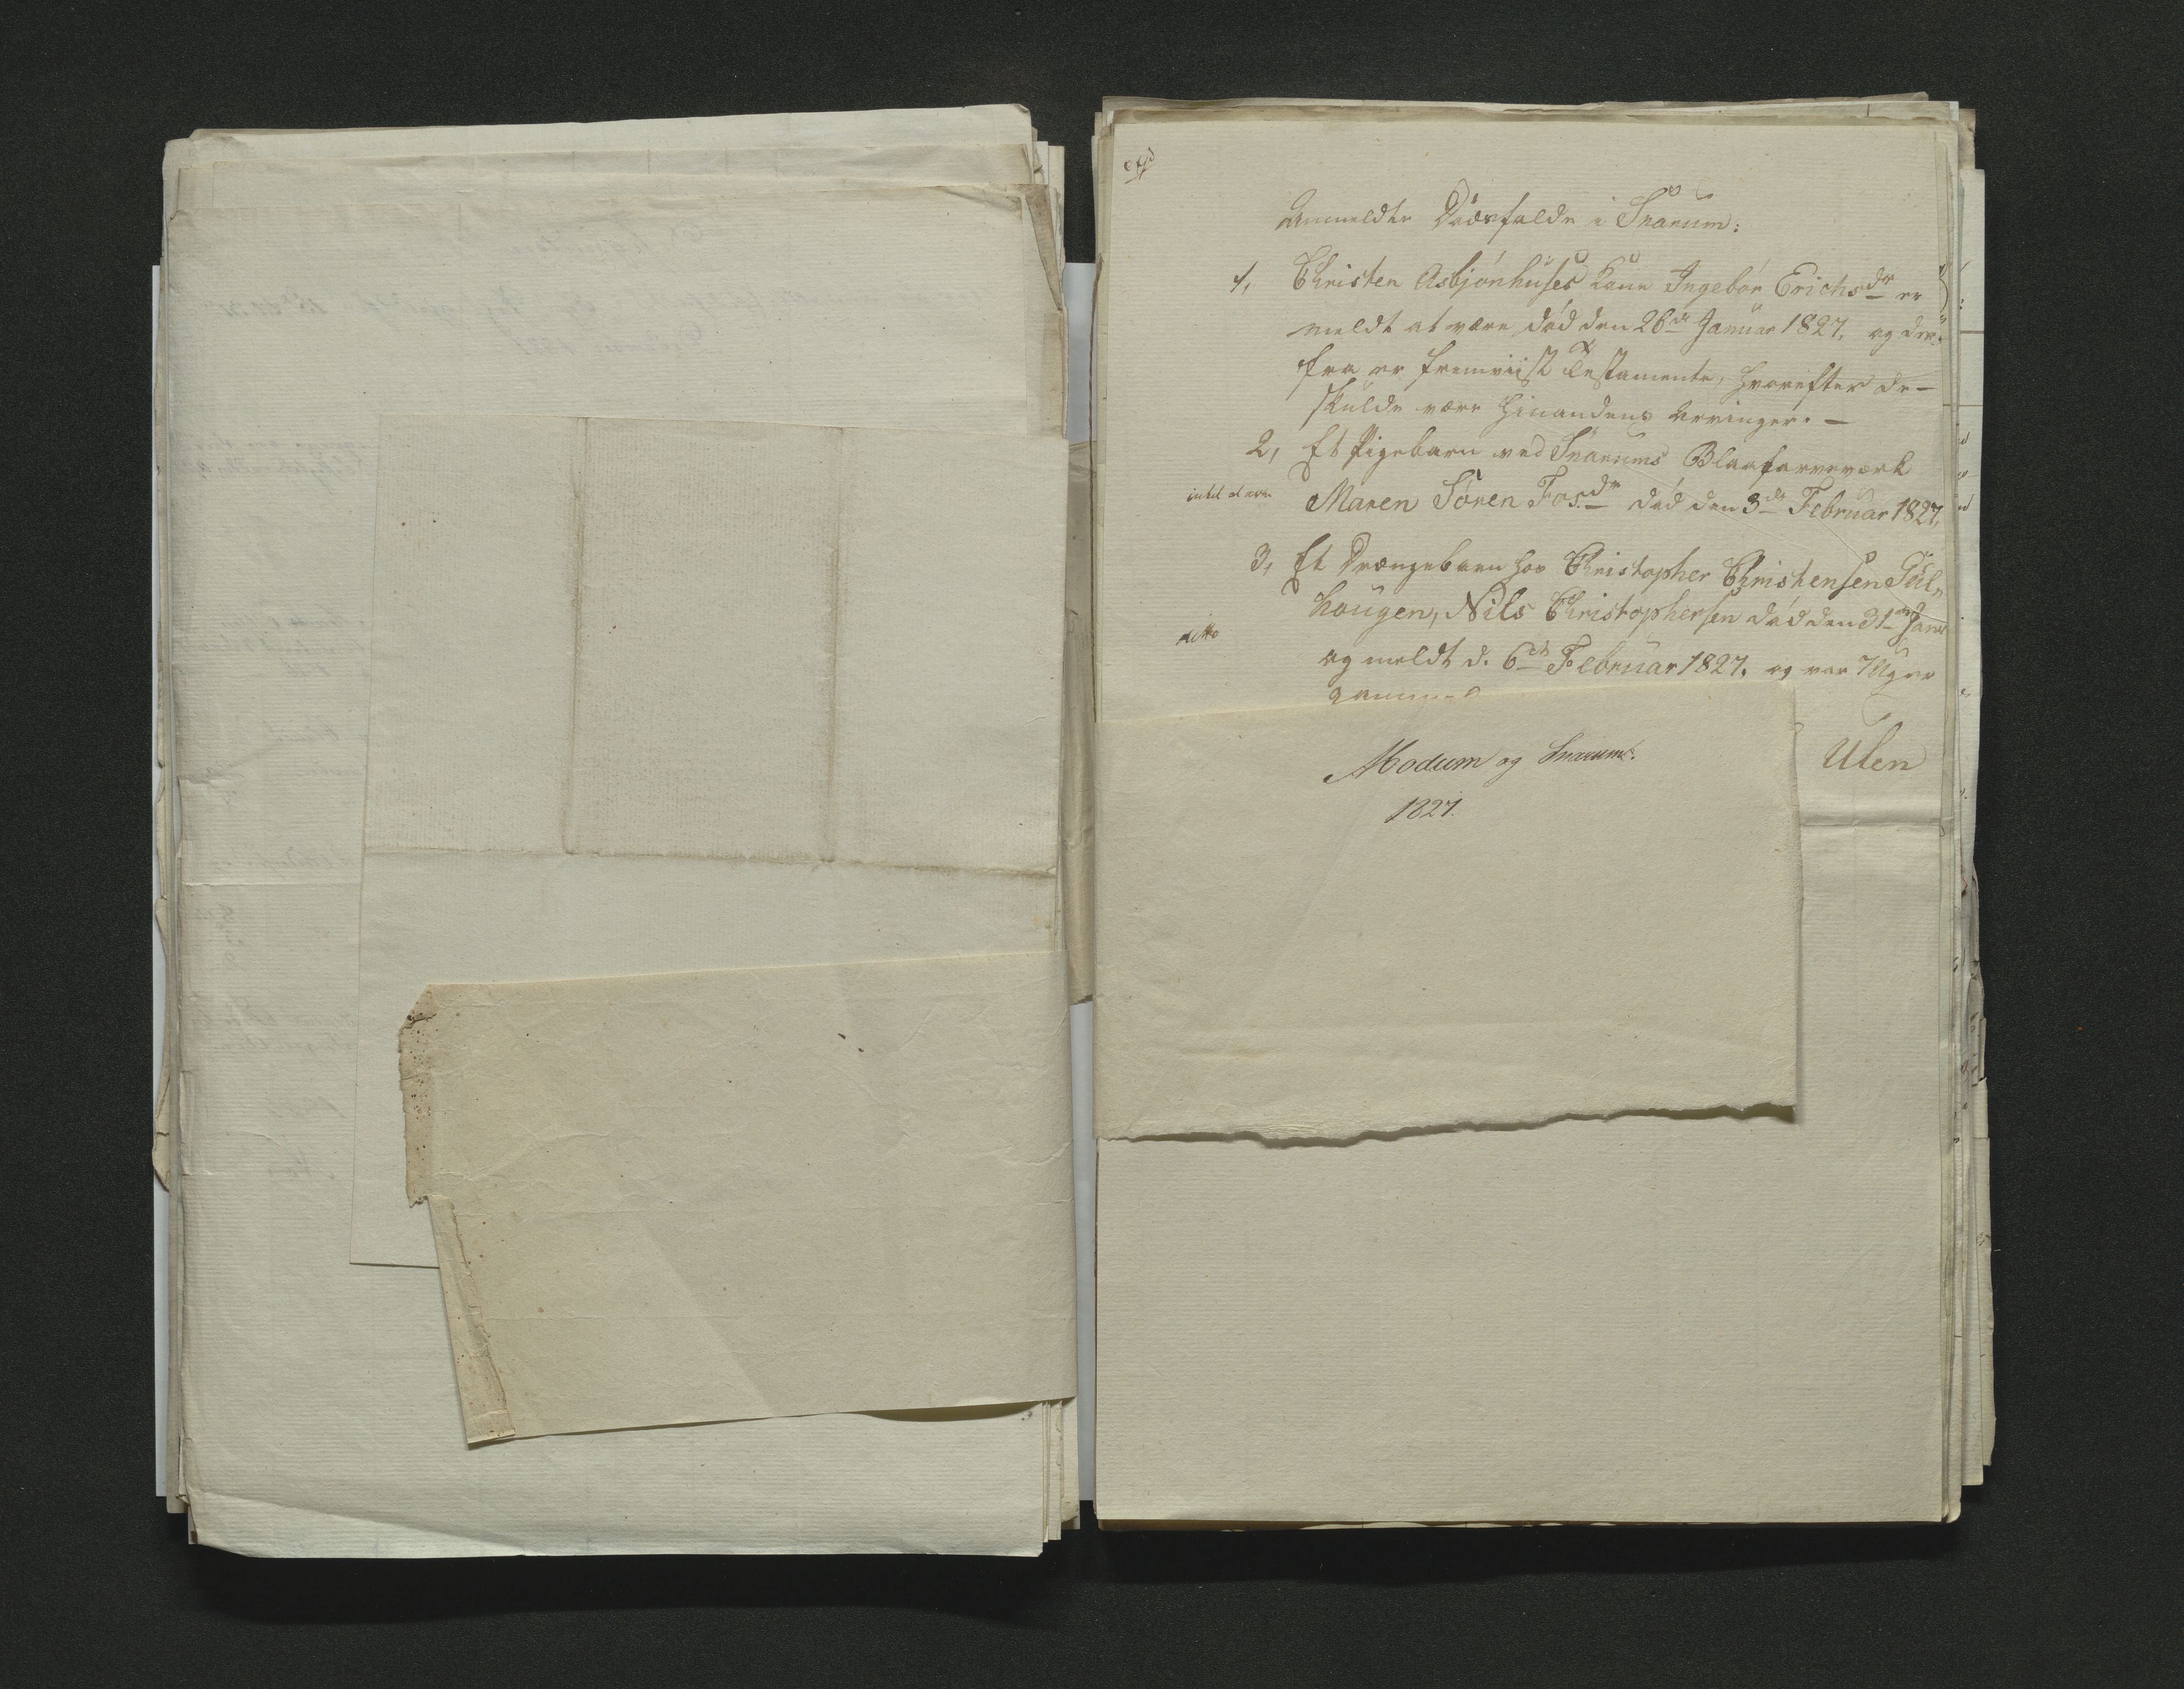 Anmeldte Dødsfalde i Snarum:
1, Christen Asbjónhuses Kone Ingebór Erichsdr er
meldt at være død den 26de Januar 1827, og der-
fra er fremviist Testamente, hvorefter de
skulde være hinandens Arvinger. —
2, Et Pigebarn ved Snarums Blaafarveværk
Maren Sóren Fosdr død den 3de Februar 1827,
3, Et Drængebarn hos Christopher Christensen
hougen, Nils Christophersen død den 31te Janr
ditto
og meldt d. 6te Februar 1827. og var 7 Uger
gammel
Ulen
Modum og Snarum:
1827.